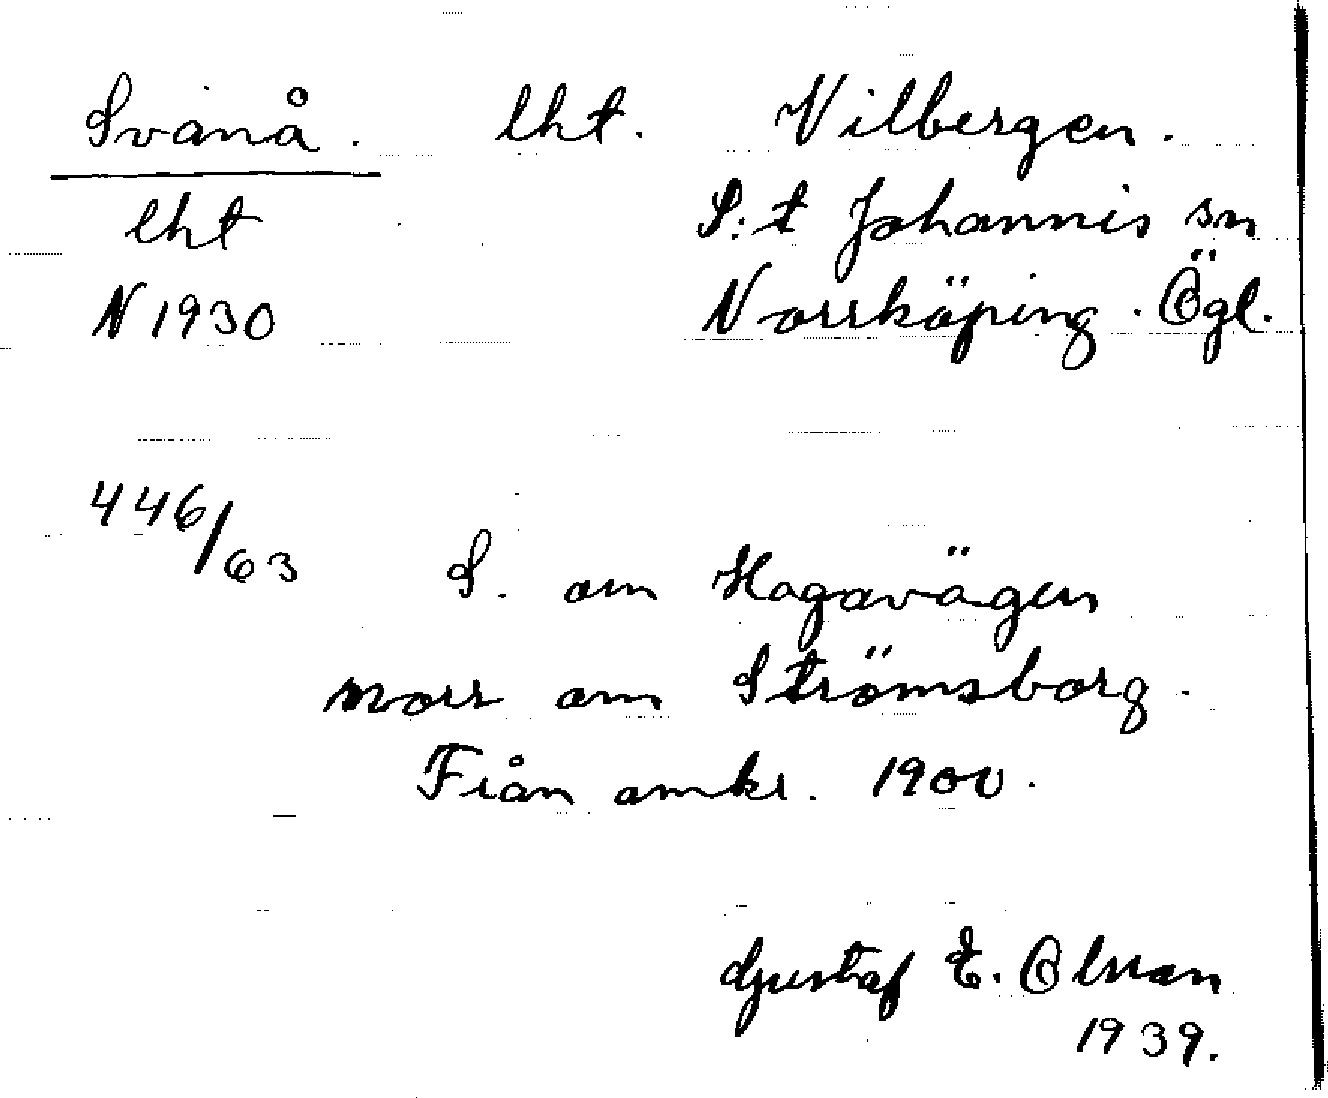 Svanå. lht. Vilbergen.
lht S:t Johannis sn
N 1930 Norrköping. Ögl.
446/63
S. om Hagavägen
norr om Strömsborg.
Från omkr. 1900.
Gustaf E. Olsson
1939.